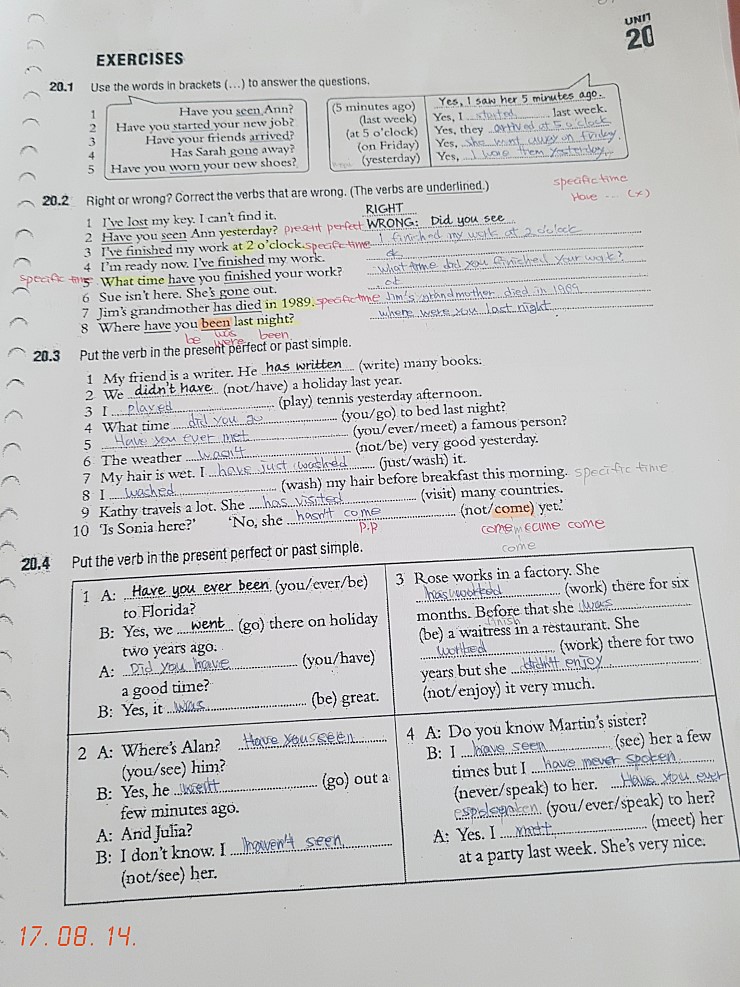 UNIT
20
EXERCISES
20.1 Use the words in brackets (…) to answer the questions.
1 Have you seen Ann? (5 minutes ago) Yes, I saw her 5 minutes ago.
2 Have you started your new job? (last week) Yes, I started last week.
3 Have your friends arrived? (at 5 o'clock) Yes, they arrived at 5 o'clock
4 Has Sarah gone away? (on Friday) Yes, she went away on Friday.
5 Have you worn your new shoes? (yesterday) Yes, I wore them yesterday.
20.2 Right or wrong? Correct the verbs that are wrong. (The verbs are underlined.)
specific time
Have ... (x)
1 I've lost my key. I can't find it. RIGHT
2 Have you seen Ann yesterday? present perfect WRONG: Did you see
3 I've finished my work at 2 o'clock. specific time I finished my work at 2 o'clock
4 I'm ready now. I've finished my work. ok
specific time 5 What time have you finished your work? what time did you finished your work?
6 Sue isn't here. She's gone out. ok
7 Jim's grandmother has died in 1989. specific time Jim's grandmother died in 1989
8 Where have you been last night? where were you last night
be was were been
20.3 Put the verb in the present perfect or past simple.
1 My friend is a writer. He has written (write) many books.
2 We didn't have (not/have) a holiday last year.
3 I played (play) tennis yesterday afternoon.
4 What time did you go (you/go) to bed last night?
5 Have you ever met (you/ever/meet) a famous person?
6 The weather wasn't (not/be) very good yesterday.
7 My hair is wet. I have just washed (just/wash) it.
8 I washed (wash) my hair before breakfast this morning. specific time
9 Kathy travels a lot. She has visited (visit) many countries.
10 'Is Sonia here?' 'No, she hasn't come (not/come) yet.'
P.P come came come
come
20.4 Put the verb in the present perfect or past simple.
1 A: Have you ever been (you/ever/be)
to Florida?
B: Yes, we went (go) there on holiday
two years ago.
A: Did you have (you/have)
a good time?
B: Yes, it was (be) great.
2 A: Where's Alan? Have you seen
(you/see) him?
B: Yes, he went (go) out a
few minutes ago.
A: And Julia?
B: I don't know. I haven't seen
(not/see) her.
3 Rose works in a factory. She
has worked (work) there for six
months. Before that she was
(be) a waitress in a restaurant. She
finish
worked (work) there for two
years but she didn't enjoy
(not/enjoy) it very much.
4 A: Do you know Martin's sister?
B: I have seen (see) her a few
times but I have never spoken
(never/speak) to her. Have you ever
(you/ever/speak) to her?
A: Yes. I (meet) her
at a party last week. She's very nice.
17. 08. 14.